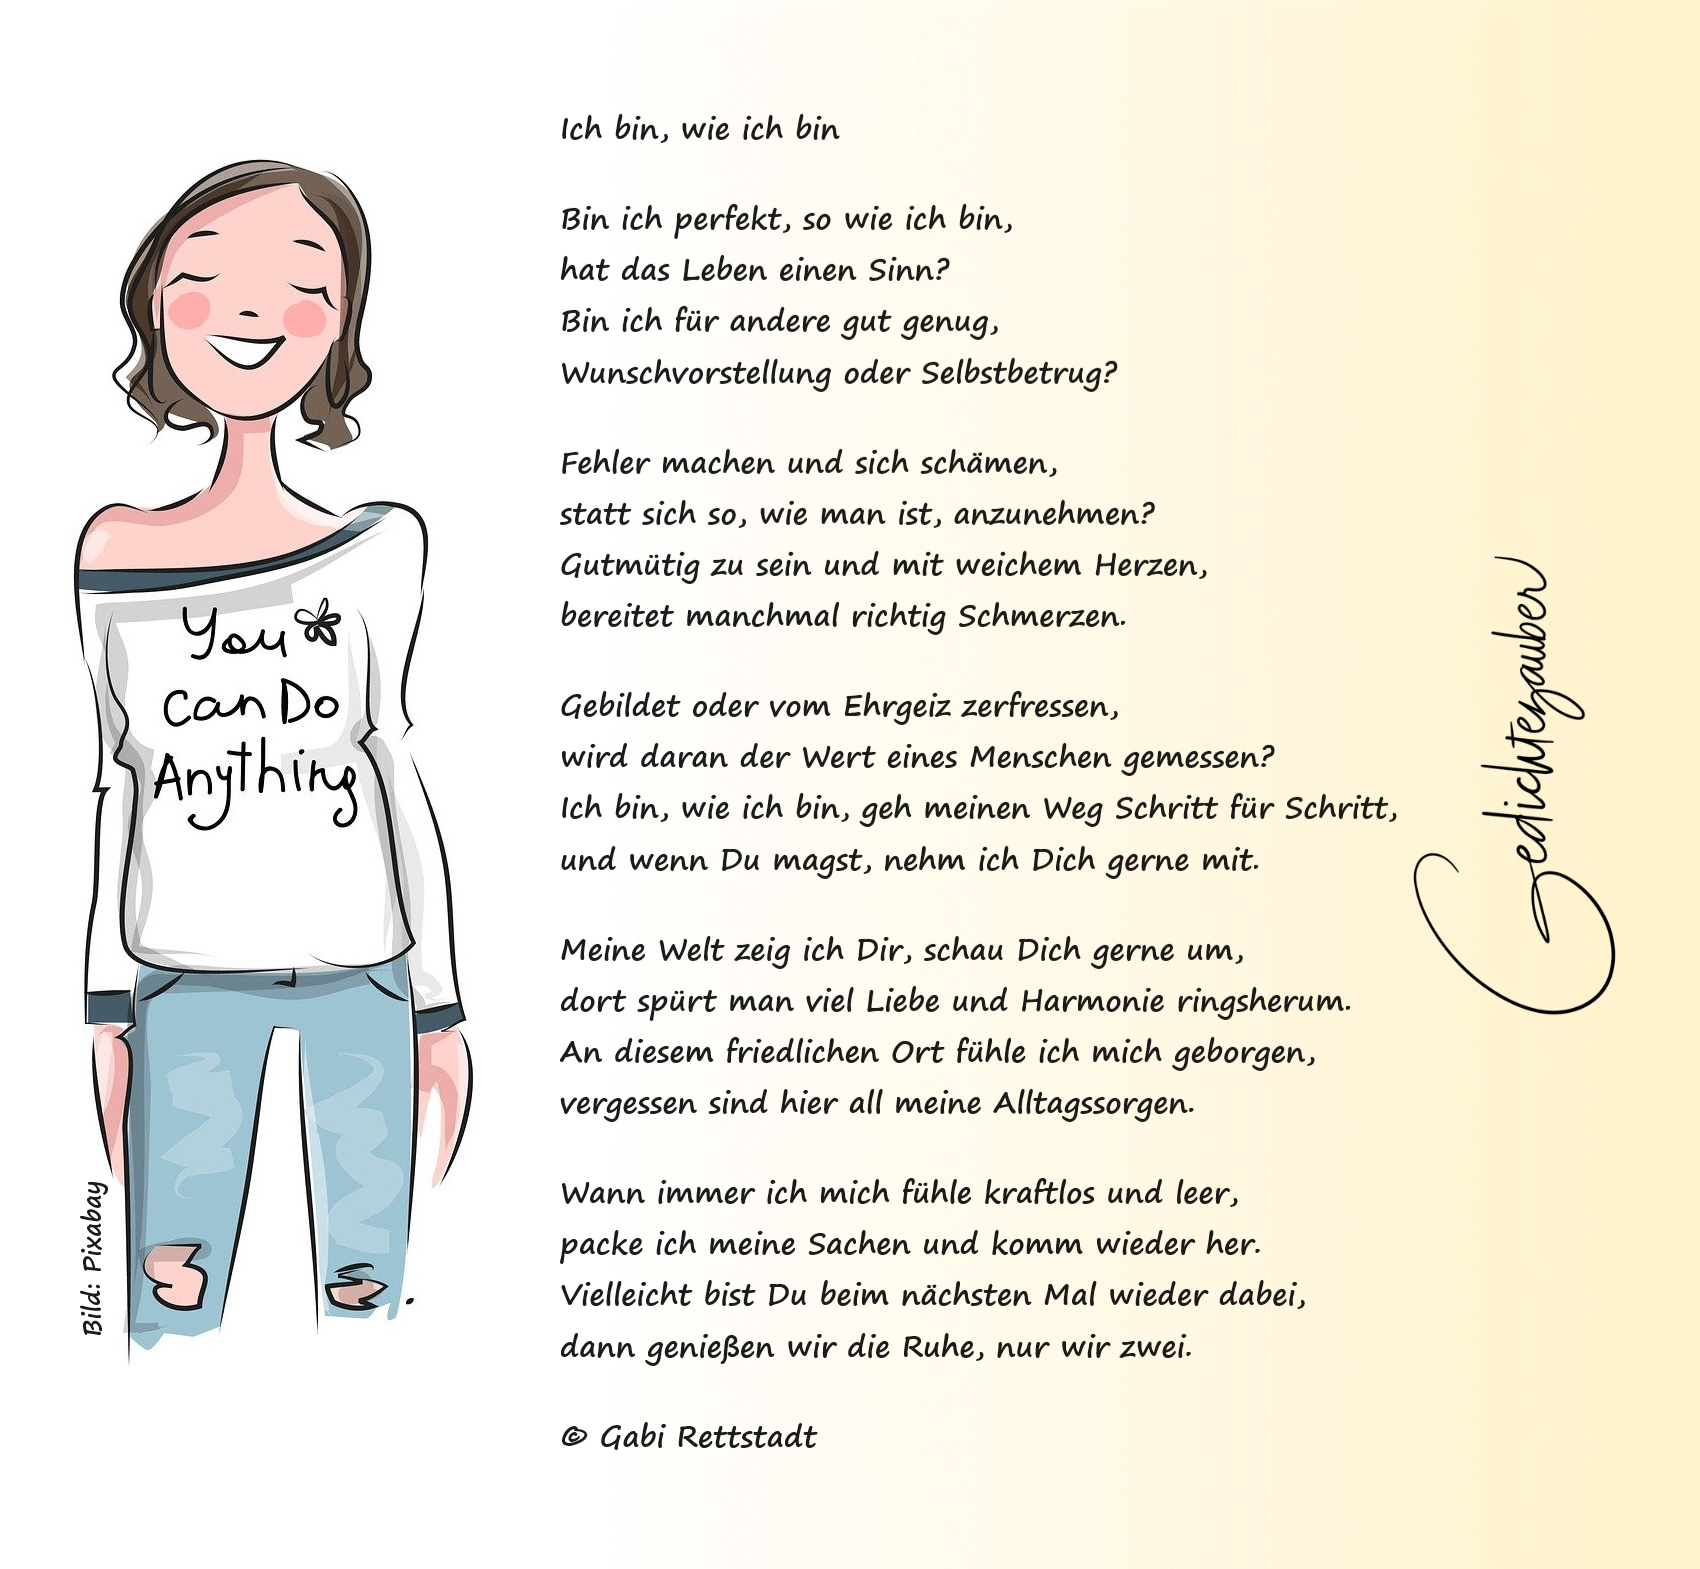 Ich bin, wie ich bin
Bin ich perfekt, so wie ich bin,
hat das Leben einen Sinn?
Bin ich für andere gut genug,
Wunschvorstellung oder Selbstbetrug?
Fehler machen und sich schämen,
statt sich so, wie man ist, anzunehmen?
Gutmütig zu sein und mit weichem Herzen,
bereitet manchmal richtig Schmerzen.
Gebildet oder vom Ehrgeiz zerfressen,
wird daran der Wert eines Menschen gemessen?
Ich bin, wie ich bin, geh meinen Weg Schritt für Schritt,
und wenn Du magst, nehm ich Dich gerne mit.
Meine Welt zeig ich Dir, schau Dich gerne um,
dort spürt man viel Liebe und Harmonie ringsherum.
An diesem friedlichen Ort fühle ich mich geborgen,
vergessen sind hier all meine Alltagssorgen.
Wann immer ich mich fühle kraftlos und leer,
packe ich meine Sachen und komm wieder her.
Vielleicht bist Du beim nächsten Mal wieder dabei,
dann genießen wir die Ruhe, nur wir zwei.
© Gabi Rettstadt
You
can Do
Anything
Bild: Pixabay
Gedichtezauber